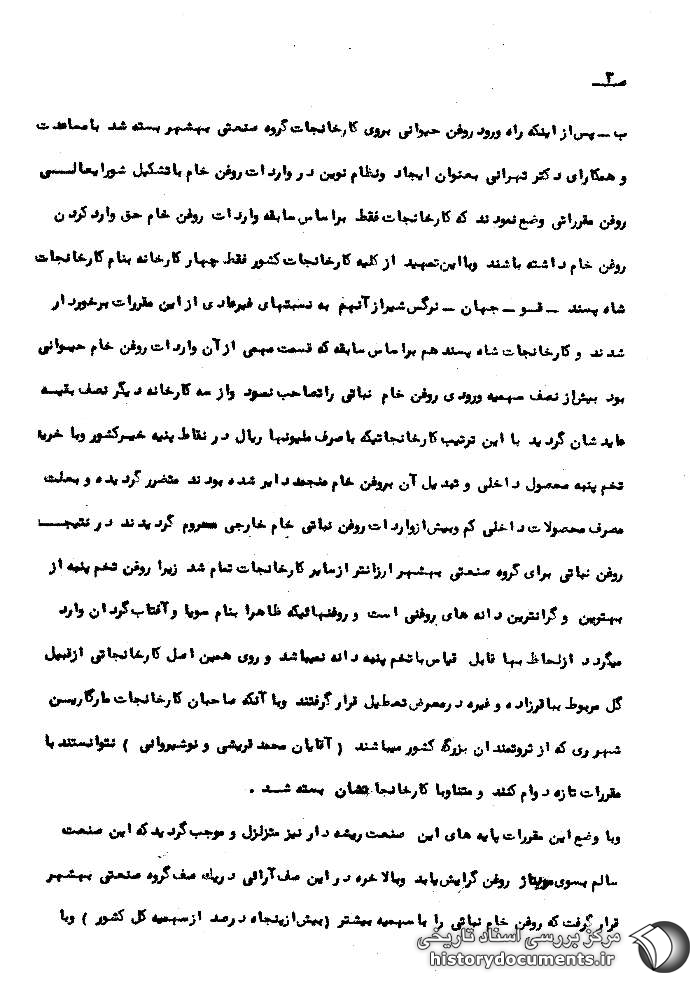 صــ۳ــ
ب ــ پس از اینکه راه ورود روغن حیوانی بروی کارخانجات گروه صنعتی بهشهر بسته شد بامساعدت
و همکاری دکتر تهرانی بعنوان ایجاد ونظام نوین در واردات روغن خام باتشکیل شورایعالــــی
روغن مقرراتی وضع نمودند که کارخانجات فقط براساس سابقه واردات روغن خام حق وارد کردن
روغن خام داشته باشند وبااین تمهید از کلیه کارخانجات کشور فقط چهار کارخانه بنام کارخانجات
شاه پسند ــ قــو ــ جهان ــ نرگس شیراز آنهم به نسبتهای غیرعادی از این مقررات برخوردار
شدند و کارخانجات شاه پسند هم براساس سابقه که قسمت مهمی از آن واردات روغن خام حیــوانی
بود بیش از نصف سهمیه ورودی روغن خام نباتی راتصاحب نمود واز سه کارخانه دیگر نصف بقیـــه
عایدشان گردید با این ترتیب کارخانجاتیکه باصرف ملیونها ریال در نقاط پنبه خیــزکشور وبا خرید
تخم پنبه محصول داخلی و تبدیل آن بروغن خام منجمد دایر شده بودند متضرر گردیده و بعلت
مصرف محصولات داخلی کم وبیش ازواردات روغن نباتی خام خارجی محروم گردیدند در نتیجـــه
روغن نباتی برای گروه صنعتی بهشهر ارزانتر ازسایر کارخانجات تمام شد زیرا روغن تخم پنبه از
بهترین و گرانترین دانه های روغنی است و روغنهائیکه ظاهرا بنام سویا وآفتاب گردان وارد
میگردد ازلحاظ بها قابل قیاس باتخم پنبه دانه نمیباشد و روی همین اصل کارخانجاتی ازقبیل
گل مربوط بباقرزاده و غیره درمعرض تعطیل قرار گرفتند وبا آنکه صاحبان کارخانجات مارگاریــن
شهر ری که از ثروتمندان بزرگ کشور میباشند ( آقایان محمد قریشی و نوشیروانی ) نتوانستند با
مقررات تازه دوام کنند و متناوبا کارخانجاتشان بسته شــد .
وبا وضع این مقررات پایه های این صنعت ریشه دار نیز متزلزل و موجب گردید که این صنعت
سالم بسوی مونتاژ روغن گرایش یابد وبالاخره در این صف آرائی دریک صف گروه صنعتی بهشهر
قرار گرفت که روغن خام نباتی را با سهمیه بیشتر (بیش ازپنجاه درصد ازسهمیه کل کشور ) وبا
مرکز بررسی اسناد تاریخی
historydocuments.ir